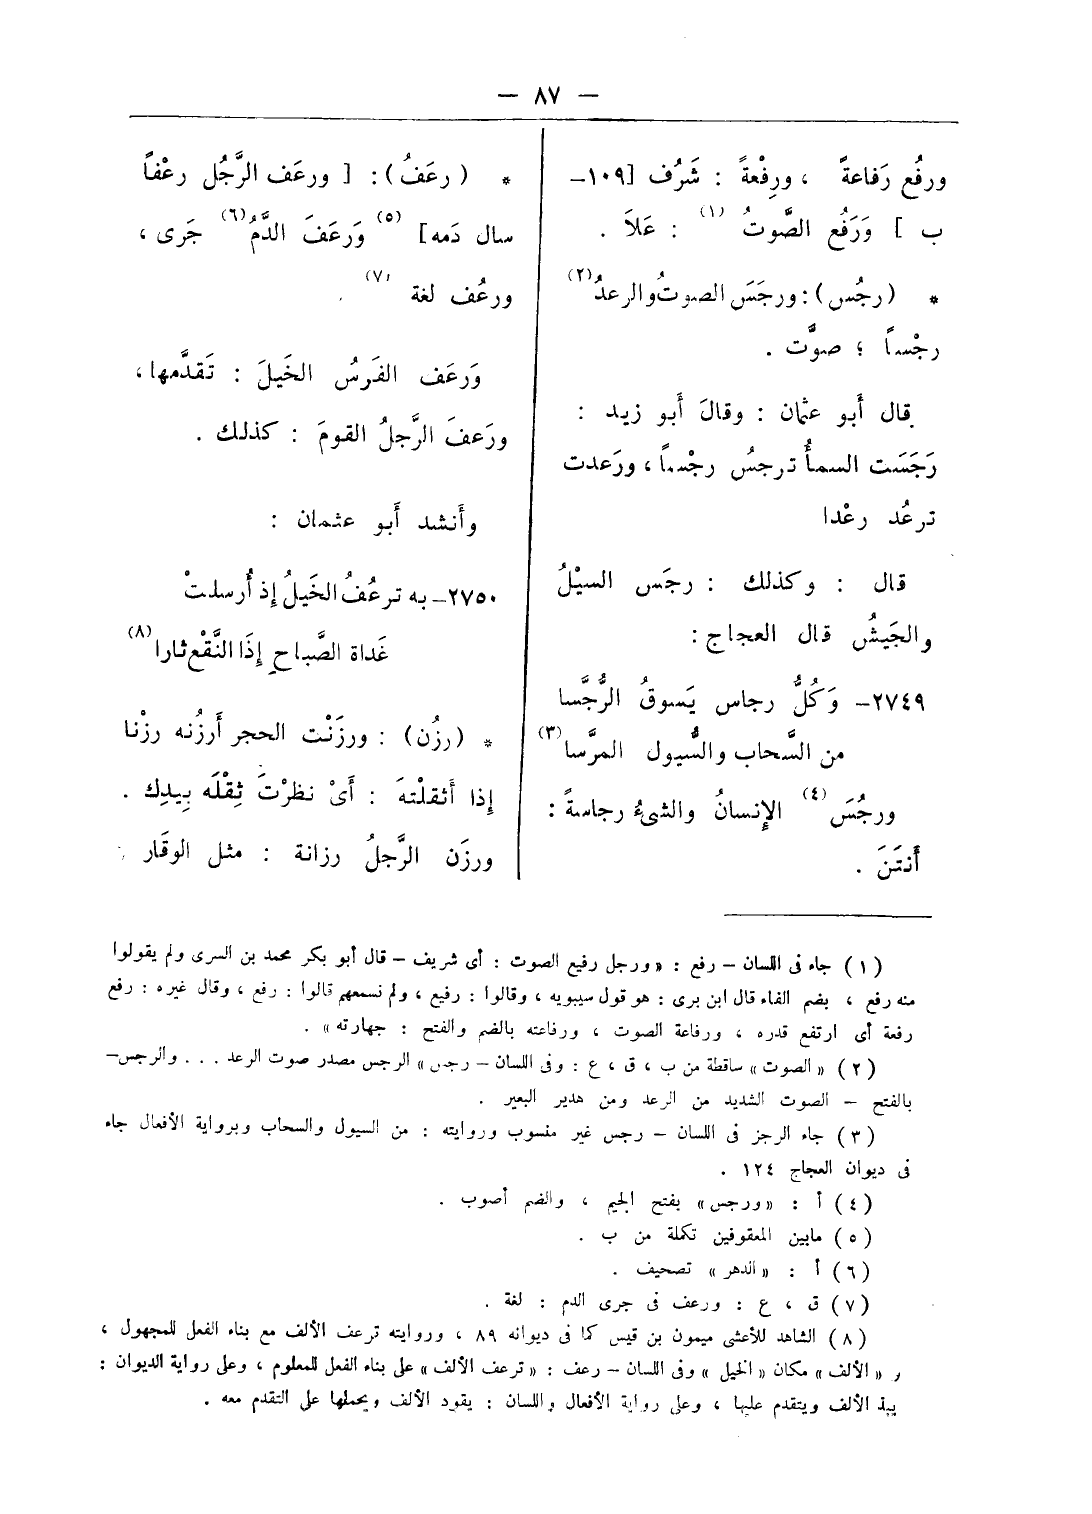 — ٨٧ —
ورفُع رَفاعةً ، ورِفْعةً : شَرُف [١٠٩ –
ب ] وَرَفُع الصَّوتُ (١) : عَلاَ .
* (رجُس) : ورجَسَ الصوتُ والرعدُ (٢)
رجْساً ؛ صوَّت .
قال أَبو عثمان : وقالَ أَبو زيد :
رَجَسَت السمأُ ترجسُ رجْساً ، ورَعدت
ترعُد رعْدا
قال : وكذلك : رجَس السيْلُ
والجَيشُ قال العجاج :
٢٧٤٩– وَكُلُّ رجاس يَسوقُ الرُّجَّسا
من السَّحاب والسُّيول المرَّسا (٣)
ورجُسَ (٤) الإنسانُ والشىءُ رجاسةً :
أَنتَنَ .
* (رعَفُ) : [ ورعَف الرَّجُل رعْفاً
سال دَمه] (٥) وَرعَفَ الدَّمُ (٦) جَرى ،
ورعُف لغة (٧) .
وَرعَف الفَرسُ الخَيلَ : تَقدَّمها ،
ورَعفَ الرَّجلُ القومَ : كذلك .
وأَنشد أَبو عثمان :
٢٧٥٠– به ترعُفُ الخَيلُ إذ أُرسلتْ
غَداة الصَّباحِ إِذَا النَّقْع ثارا (٨)
* (رزُن) : ورزَنْت الحجر أَرزُنه رزْنا
إِذا أَثقلْتهَ : أَىْ نظرْتَ ثِقْلَه بِيدِك .
ورزَن الرَّجلُ رزانة : مثل الوقَار .
(١) جاء فى اللسان – رفع : «ورجل رفيع الصوت : أى شريف – قال أبو بكر محمد بن السرى ولم يقولوا
منه رفع ، بضم الفاء قال ابن برى : هو قول سيبويه ، وقالوا : رفيع ، ولم نسمعهم قالوا : رفع ، وقال غيره : رفع
رفعة أى ارتفع قدره ، ورفاعة الصوت ، ورفاعته بالضم والفتح : جهارته» .
(٢) «الصوت» ساقطة من ب ، ق ، ع : وفى اللسان – رجس» الرجس مصدر صوت الرعد . . . والرجس–
بالفتح – الصوت الشديد من الرعد ومن هدير البعير .
(٣) جاء الرجز فى اللسان – رجس غير منسوب وروايته : من السيول والسحاب وبرواية الأفعال جاء
فى ديوان العجاج ١٢٤ .
(٤) أ : «ورجس» بفتح الجيم ، والضم أصوب .
(٥) مابين المعقوفين تكملة من ب .
(٦) أ : «الدهر» تصحيف .
(٧) ق ، ع : ورعف فى جرى الدم : لغة .
(٨) الشاهد للأعشى ميمون بن قيس كما فى ديوانه ٨٩ ، وروايته ترعف الألف مع بناء الفعل للمجهول ،
و «الألف» مكان «الخيل» وفى اللسان – رعف : «ترعف الألف» على بناء الفعل للمعلوم ، وعلى رواية الديوان :
يبذ الألف ويتقدم عليها ، وعلى رواية الأفعال واللسان : يقود الألف ويحملها على التقدم معه .